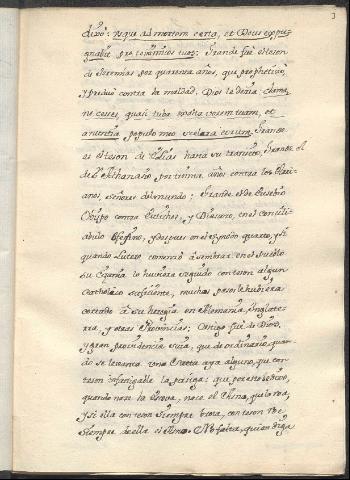 3
dixò: usque ad mortem certa, et Deus expug
nabit pro te inimicos tuos: Grande fue el teson
de Jeremias por quarenta años, que prophetizò,
y predicò contra la maldad. Dios le dezia: clama,
ne cesses, quasi tuba exalta vocem tuam, et
anuntia populo meo scelera eorum. Grande
es el teson de Elias hasta su transito, Grande el
de Sn Athanasio por treinta años contra los Arri-
anos, señores del mundo: Grande el de Eusebio
Obispo contra Eutiches, y Dioscoro, en el concili-
abulo Efesino, y despues en el Synodo quarto, y si
quando Lutero comenzò à sembrar en el Pueblo
su Cizania, lo huviera seguido con teson algun
Catholico suficiente, muchos pasos le hubiera
cortado à su heregia en Alemania, Inglater-
ra, y otras Provincias; Castigo fue de Dios,
y gran providencia suia, que de ordinario, quan-
do se levanta una Secta aya alguno, que con
teson infatigable la persiga: que por esto se dixo,
quando nace la Escoba, nace el Asno, que la roa,
y si ella con teson siempre brota, con teson roe
siempre de ella el Asno. No falta, quien diga